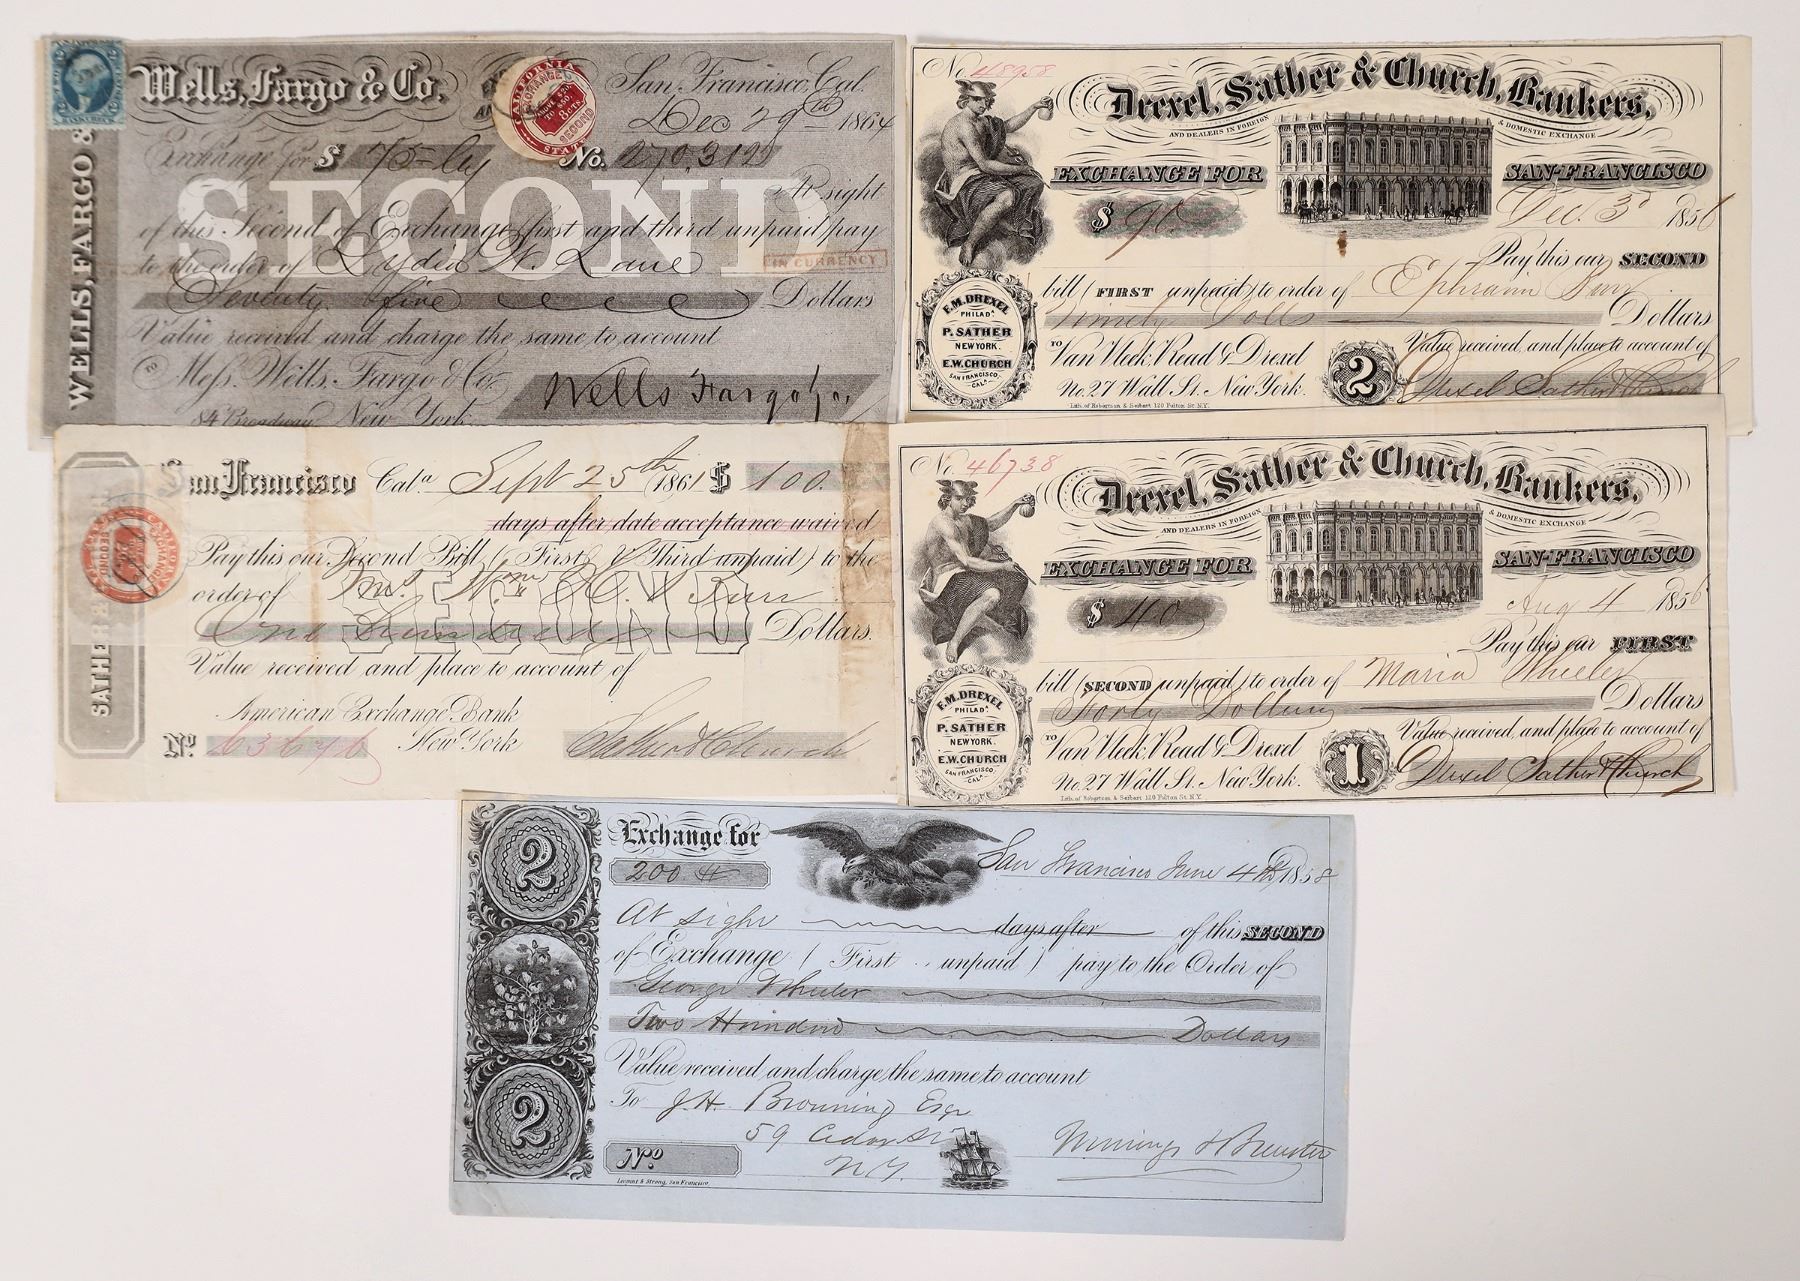 Wells, Fargo & Co.
San Francisco, Cal.
Dec 29th 1864
CALIFORNIA
EXCHANGE
8 CTS.
SECOND
STATE
Exchange for $ 75
No. 270.319
At sight
SECOND
of this Second of Exchange first and third unpaid pay
to the order of Lydia W. Lane
IN CURRENCY
Seventy five Dollars
Value received and charge the same to account
Mess. Wells, Fargo & Co.
84 Broadway New York
Wells Fargo & Co.
WELLS, FARGO &
No. 48958
Drexel, Sather & Church, Bankers,
AND DEALERS IN FOREIGN & DOMESTIC EXCHANGE
EXCHANGE FOR SAN-FRANCISCO
$ 90. Dec. 3d 1856
Pay this our SECOND
bill (FIRST unpaid) to order of Ephraim
Ninety Dolls Dollars
F.M. DREXEL
PHILADA.
P. SATHER
NEW YORK.
E.W. CHURCH
SAN FRANCISCO,
CALA.
Value received, and place to account of
TO Van Vleck, Read & Drexel
No. 27 Wall St. New York.
2
Drexel Sather & Church
Lith. of Robertson & Seibert 120 Fulton St. N.Y.
San Francisco Cala. Sept 25th 1861 $ 100.
days after date acceptance waived
Pay this our Second Bill (First & Third unpaid) to the
order of Mrs. Wm
SECOND
One Hundred Dollars.
Value received and place to account of
American Exchange Bank
New York
No 63676
Sather & Church
SATHER &
No. 46738
Drexel, Sather & Church, Bankers,
AND DEALERS IN FOREIGN & DOMESTIC EXCHANGE
EXCHANGE FOR SAN-FRANCISCO
$ 40 Aug 4 1856
Pay this our FIRST
bill (SECOND unpaid) to order of Maria Wheeler
Forty Dollars Dollars
F.M. DREXEL
PHILADA.
P. SATHER
NEW YORK.
E.W. CHURCH
SAN FRANCISCO,
CALA.
Value received, and place to account of
TO Van Vleck, Read & Drexel
No. 27 Wall St. New York.
1
Drexel Sather & Church
Lith. of Robertson & Seibert 120 Fulton St. N.Y.
2
Exchange for
200
San Francisco June 4th 1858
At sight days after of this SECOND
of Exchange (First unpaid) pay to the Order of
George Wheeler
Two Hundred Dollars
Value received and charge the same to account
To J.H. Browning Esqr
59 Cedar St
N.Y.
2
No
& Brewster
Lecount & Strong, San Francisco.